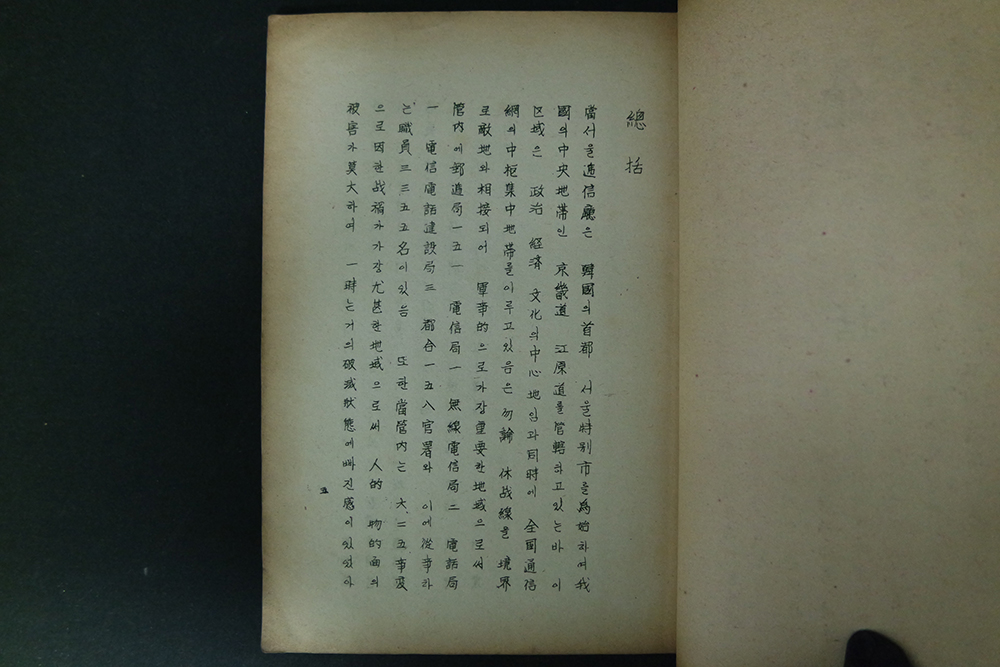 總括
當서울遞信廳은 韓國의首都 서울特別市를爲始하여我
國의中央地帶인 京畿道 江原道를管轄하고있는바 이
区域은 政治 経済 文化의中心地임과同時에 全国通信
網의中枢集中地帶를이루고있음은勿論 休战線을境界
로敵地와相接되어 軍事的으로가장重要한地域으로써
管内에郵遞局一五一 電信局一 無線電信局二 電話局
一 電信電話建設局三 都合一五八官署와 이에從事하
는職員三三五五名이있음 또한當管内는 六二五事変
으로因한战禍가가장尤甚한地域으로써 人的 物的面의
被害가莫大하여 一時는거의破滅狀態에빠진感이있었아